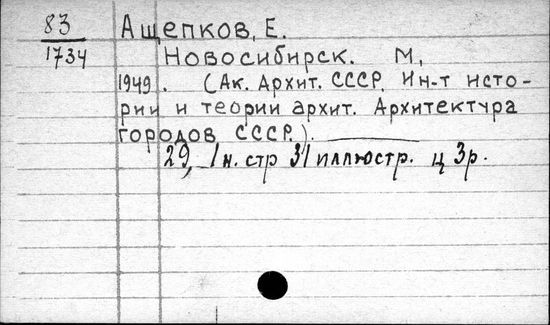 83
1734
Ащепков, Е.
Новосибирск. М,
1949. (Ак. Архит. СССР. Ин-т исто-
рии и теории архит. Архитектура
городов СССР.).
29, 1 н. стр 31 иллюстр. ц 3р.